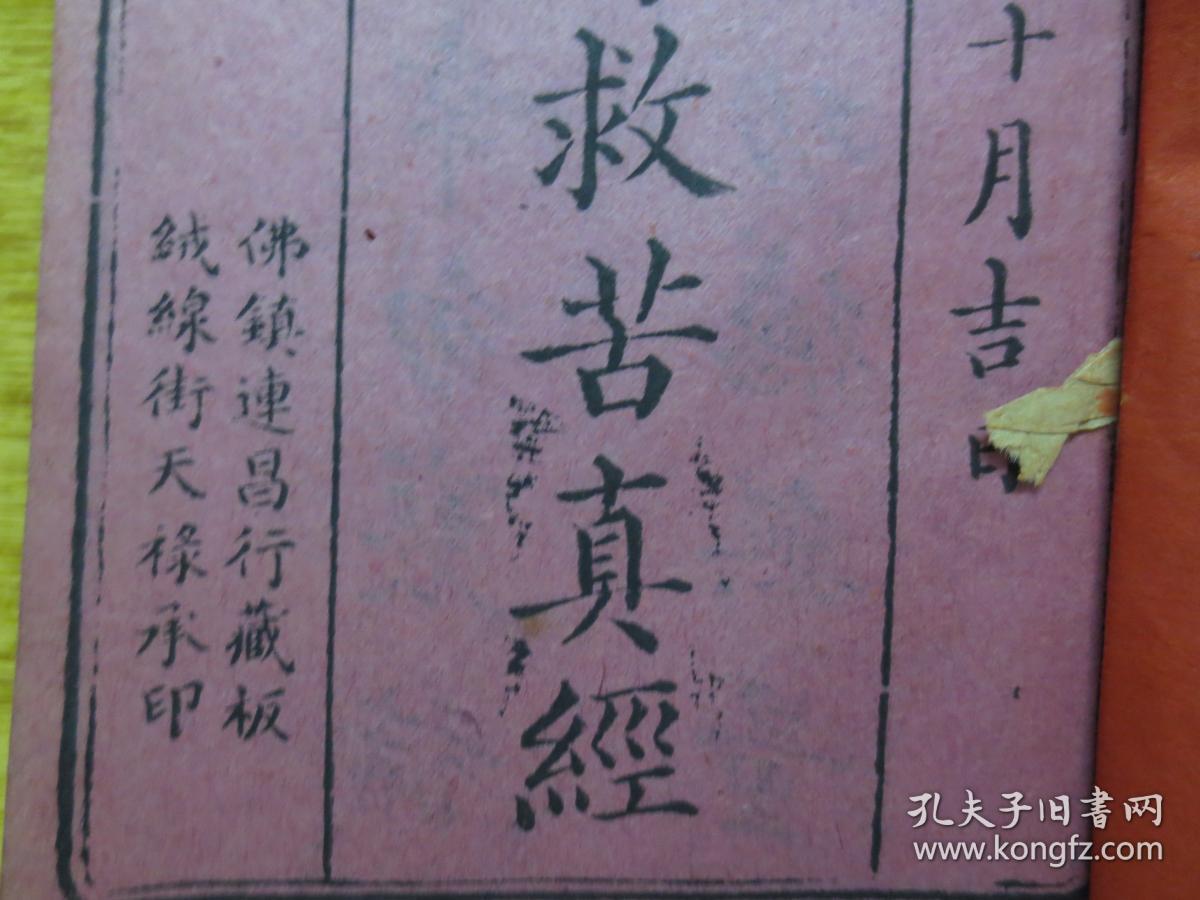 十月吉
救苦真經
佛鎮連昌行藏板
絨線街天祿承印
孔夫子旧书网
www.kongfz.com